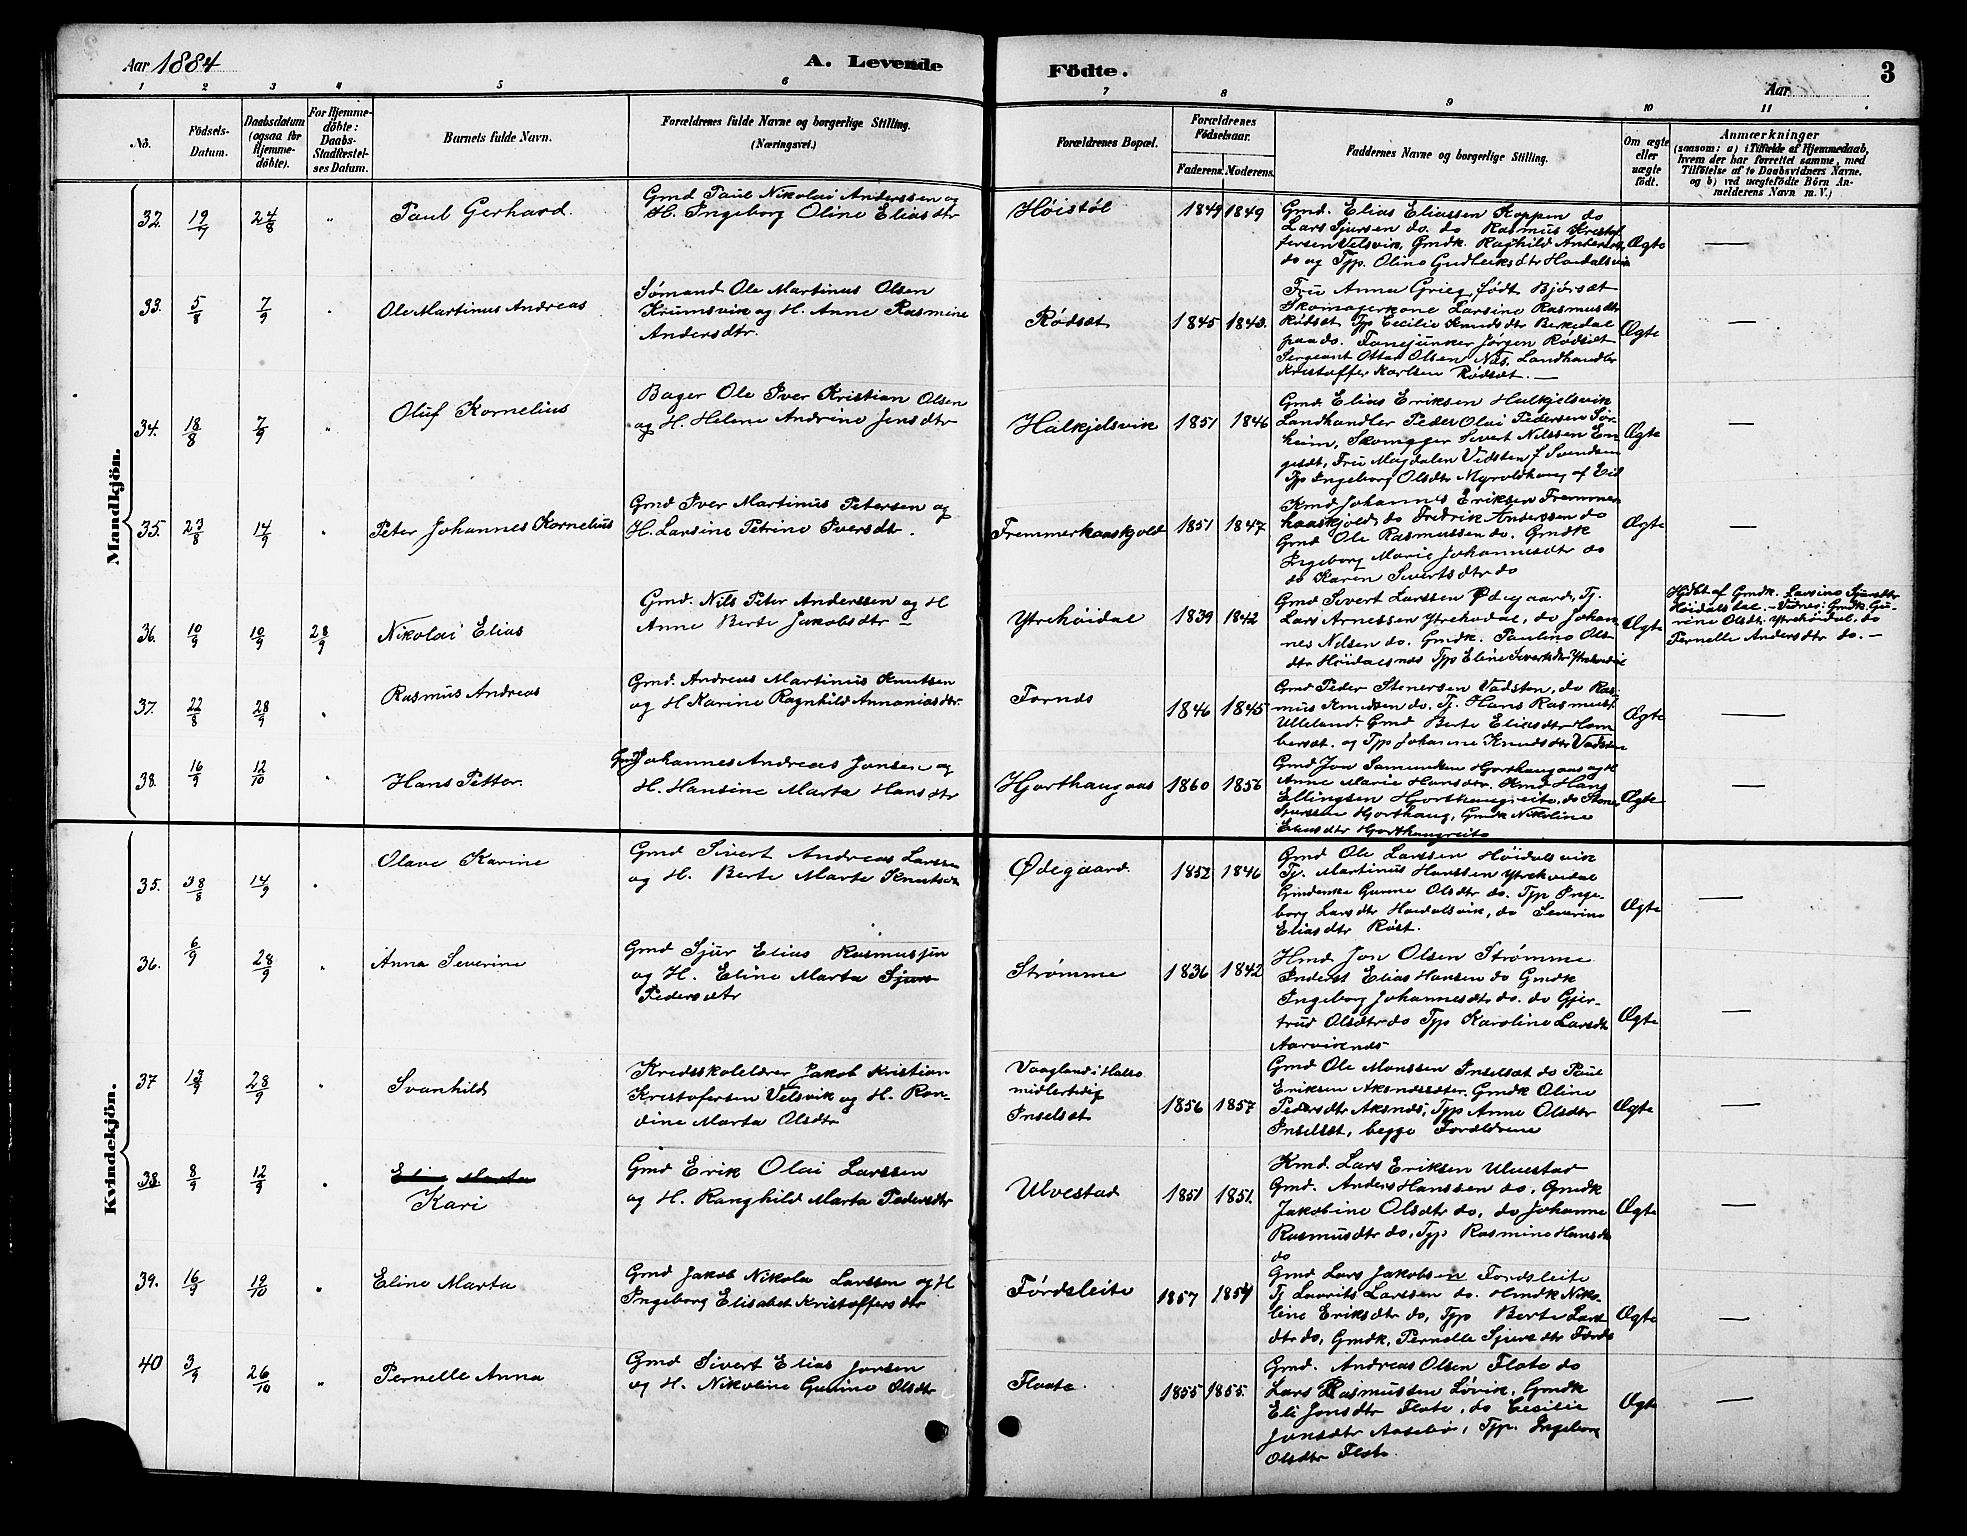 Aar 1884
A. Levende
Födte.
Aar
3
1 2 3 4 5 6 7 8 9 10 11
No.
Födsels-
Datum.
Daabsdatum
(ogsaa for
Hjemme-
döbte).
For Hjemme-
döbte:
Daabs-
Stadfæstel-
ses Datum.
Barnets fulde Navn.
Forældrenes fulde Navne og borgerlige Stilling.
(Næringsvei.)
Forældrenes Bopæl.
Forældrenes
Födselsaar.
Faderens. Moderens.
Faddernes Navne og borgerlige Stilling.
Om ægte
eller
uægte
født.
Anmærkninger
(saasom: a) i Tilfælde af Hjemmedaab,
hvem der har forrettet samme, med
Tilföielse af to Daabsvidners Navne.
og b) ved uægtefödte Börn An-
melderens Navn m. V.)
Mandkjön.
32. 19/7 24/8 " Paul Gerhard.
Gmd Paul Nikolai Anderssen og
H. Ingeborg Oline Eliasdtr
Høistøl 1849 1849
Gmd. Elias Eliassen Koppen do
Lars Sjursen do. do Rasmus Kristof
fersen Velsvik, Gmdk. Raghild Andersdtr
do og Typ. Oline Gudleiksdtr Hoidalsvik
Ægte —
33. 5/8 7/9 " Ole Martinus Andreas
Sømand Ole Martinus Olsen
Krumsvik og H. Anne Rasmine
Andersdtr.
Rødsæt 1845 1843.
Fru Anna Grieg født Bjørsæt
Skomagerkone Larsine Rasmusdtr
Rødsæt Typ Cecilie Knudsdtr Berkedal
paa do. Fanejunker Jørgen Rødsæt
Sergeant Ottar Olsen Nes. Landhandler
Kristoffer Karlsen Rødsæt. —
Ægte —
34. 18/8 7/9 " Oluf Kornelius
Bager Ole Iver Kristian Olsen
og H. Helene Andrine Jensdtr
Halkjelsvik 1851 1846
Gmd. Elias Eriksen Halkjelsvik
Landhandler Peder Olai Pedersen Sør-
heim, Skomager Sivert Nilssen En
gesæt, Fru Magdalen Vidsten f Svendsen
Typ Ingeborg Olsdtr Myrvoldhaug af Eid
Ægte —
35. 23/8 14/9 " Peter Johannes Kornelius
Gmd Iver Martinus Petersen og
H. Larsine Petrine Iversdtr.
Fremmerhaaskjold 1851 1847
Kmd Johannes Eriksen Fremmer
haaskjold, do Fredrik Anderssen do
Gmd Ole Rasmussen do. Gmdk
Ingeborg Marie Johannesdtr do
do Karen Sivertsdtr do
Ægte —
36. 10/9 10/9 28/9 Nikolai Elias
Gmd. Nils Peter Anderssen og H
Anne Berte Jakobsdtr —
Ytrehøidal 1839 1842
Gmd Sivert Larssen Ødegaard, Tj.
Lars Arnessen Ytrehodal, do Johan
nes Nilsen do. Gmdk. Pauline Ols
dtr Høidalsnes Typ Eline Sivertsdtr Ytrehoidal
Ægte
Hdbt af Gmdk. Larsine Sjursdtr
Høidalsdal. — Vidner: Gmdk. Gu-
rine Olsdtr. Ytrehøidal, do
Pernelle Andersdtr do. —
37. 22/8 28/9 " Rasmus Andreas
Gmd. Andreas Martinius Knutsen
og H Karine Ragnhild Annaniasdtr.
Fornes 1846 1845
Gmd Peder Stenersen Vadsten, do Ras-
mus Knudsen do. Tj. Hans Rasmuss.
Ulleland. Gmd Berte Eliasdtr Hom
bersæt. og Typ Johanne Knudsdtr Vadsten
Ægte —
38. 16/9 12/10 " Hans Petter.
Gmd Johannes Andreas Jonsen og
H. Hansine Marta Hansdtr
Hjorthaugaas 1860 1856
Gmd Jon Samundsen Hjorthaugaas og H
Anne Marie Hansdtr. Kmd Hans
Ellingsen Hjorthaugreite, do Stene
Sjurssen Hjorthaug, Gmdk Nikoline
Eliasdtr Hjorthaugreite
Ægte —
Kvindekjön.
35. 28/8 14/9 " Olave Karine
Gmd Sivert Andreas Larssen
og H. Berte Marte Knutsdtr
Ødegaard. 1852 1846
Gmd Ole Larssen Høidalsvik
Tj. Martinus Hanssen Ytrehoidal
Gmdenke Gurine Olsdtr do. Typ Inge-
borg Larsdtr Hoidalsvik, do Severine
Eliasdtr Røst.
Ægte —
36. 6/9 28/9 " Anna Severine
Gmd Sjur Elias Rasmussen
og H. Eline Marta Sjurs
Pedersdtr
Strømme 1836 1842
Hmd Jon Olsen Strømme
Inderst Elias Hansen do Gmdk
Ingeborg Johannesdtr do. do Gjer-
trud Olsdtr do Typ Karoline Larsdtr
Aarviknes
Ægte —
37 13/9 28/9 " Svanhild
Kredsskolelærer Jakob Kristian
Kristofersen Velsvik og H. Ran-
dine Marta Olsdtr
Vaagland i Halso
midlertidig
Inselsæt 1856 1857
Gmd Ole Monssen Inselsæt do Paul
Eriksen Aksnessæter. Gmdk Oline
Pedersdtr Aksnes, Typ Anne Olsdtr
Inselsæt, begge Forældrene
Ægte —
38. 8/9 12/9 " Eline Marta
Kari
Gmd Erik Olai Larssen
og H. Ranghild Marta Pedersdtr
Ulvestad 1851 1851.
Kmd. Lars Eriksen Ulvestad
Gmd. Anders Hanssen do, Gmdk
Jakobine Olsdtr do, do Johanne
Rasmusdtr do, Typ Rasmine Hansdtr
do
Ægte —
39. 16/9 12/10 " Eline Marta
Gmd Jakob Nikolai Larssen og H
Ingeborg Elisabet Kristoffersdtr
Førdsleite 1857 1854
Gmd Lars Jakobsen Fordsleite
Tj Laurits Larssen do. Hmdk Niko-
line Eriksdtr do, Typ Berte Lars
dtr do, Gmdk, Pernelle Sjursdtr Førde
Ægte —
40 3/9 26/10 " Pernelle Anna
Gmd Sivert Elias Jonsen
og H. Nikoline Gurine Olsdtr
Flaate. 1855 1855.
Gmd. Andreas Olsen Flote do
Lars Rasmussen Løvik, Gmdk
Eli Jonsdtr Flote, do Cecilie
Jonsdtr Aasebø, Typ. Ingeborg
Olsdtr Flote.
Ægte —